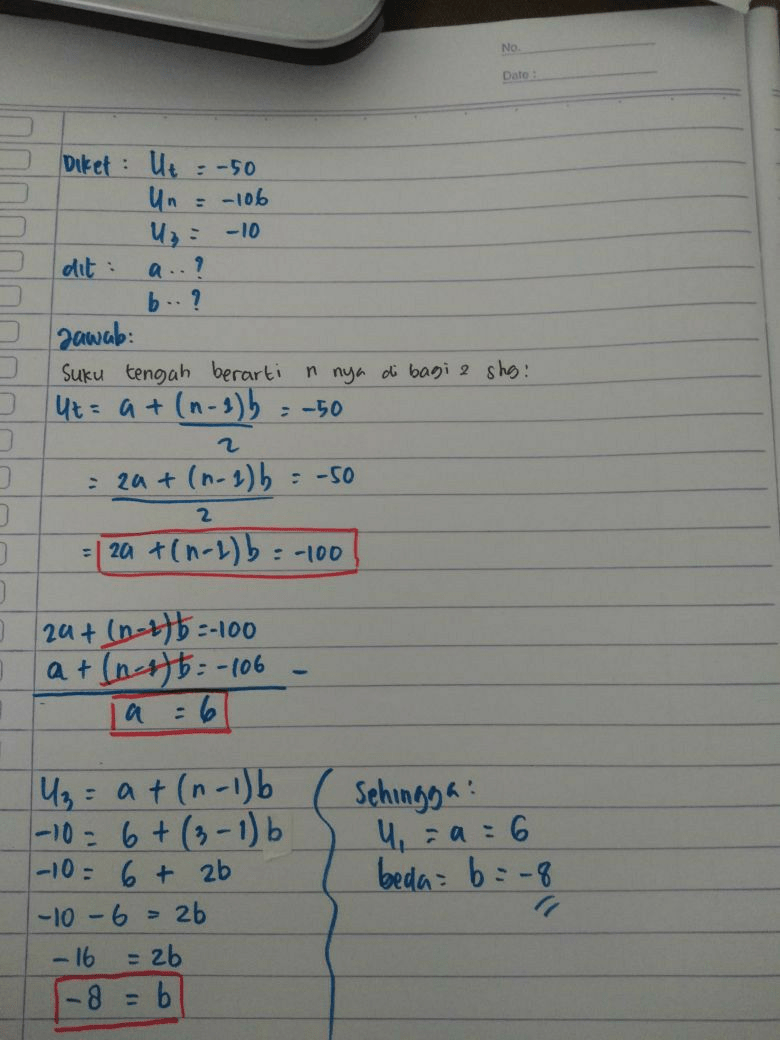 No.
Date :
Diket : Ut = -50
Un = -106
U3 = -10
dit : a .. ?
b .. ?
Jawab:
Suku tengah berarti n nya di bagi 2 shg:
Ut = a + (n-1)b = -50
2
= 2a + (n-1)b = -50
2
= 2a + (n-1)b = -100
2a + (n-1)b = -100
a + (n-1)b = -106 -
a = 6
U3 = a + (n-1)b
-10 = 6 + (3-1)b
-10 = 6 + 2b
-10 - 6 = 2b
-16 = 2b
-8 = b
Sehingga:
U1 = a = 6
beda = b = -8